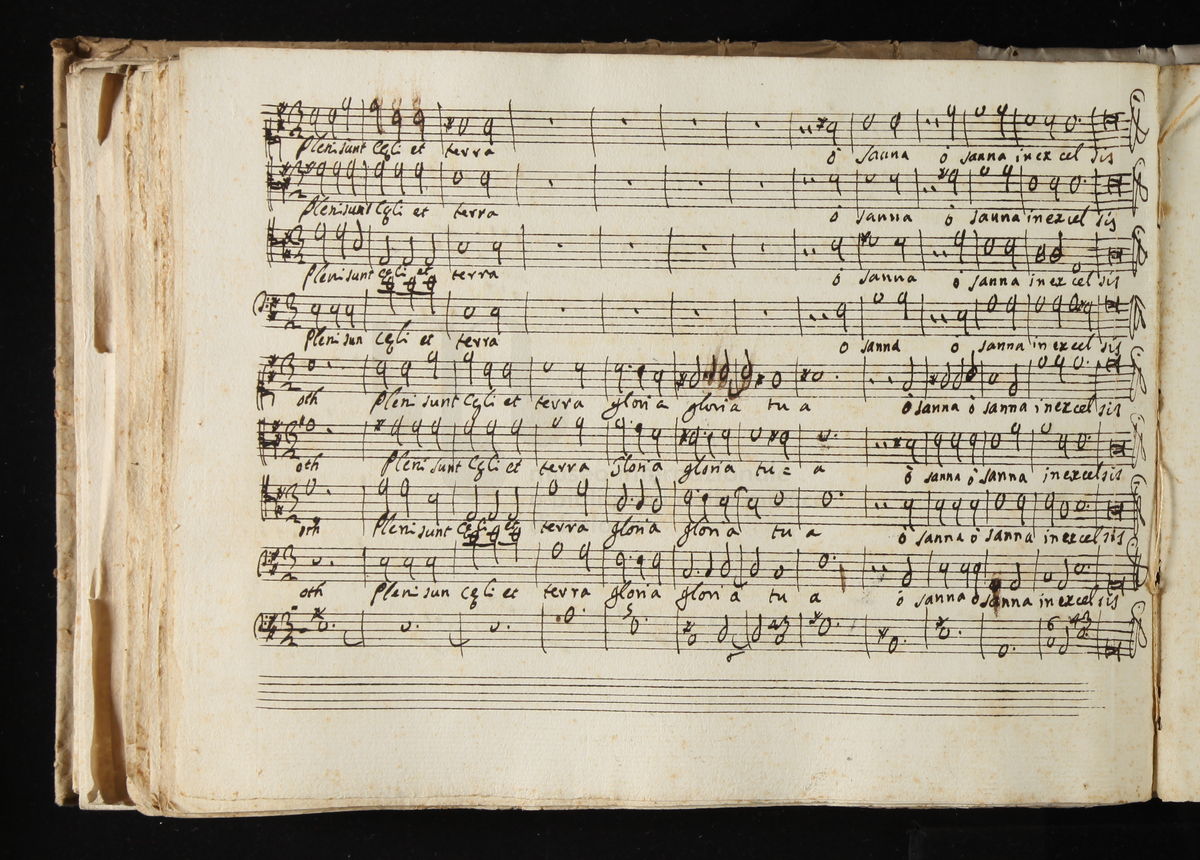 Pleni sunt Cęli et terra ò sanna ò sanna in ex cel sis
Pleni sunt Cęli et terra ò sanna ò sanna in excel sis
Pleni sunt cęli et terra ò sanna ò sanna in ex cel sis
Pleni sun Cęli et terra ò sanna ò sanna in ex cel sis
oth Pleni sunt Cęli et terra gloria gloria tu a ò sanna ò sanna in excel sis
oth Pleni sunt Cęli et terra gloria gloria tu = a ò sanna ò sanna in excel sis
oth Pleni sunt Cęli et terra gloria gloria tu a ò sanna ò sanna in excel sis
oth Pleni sun Cęli et terra gloria gloria tu a ò sanna ò sanna in excel sis